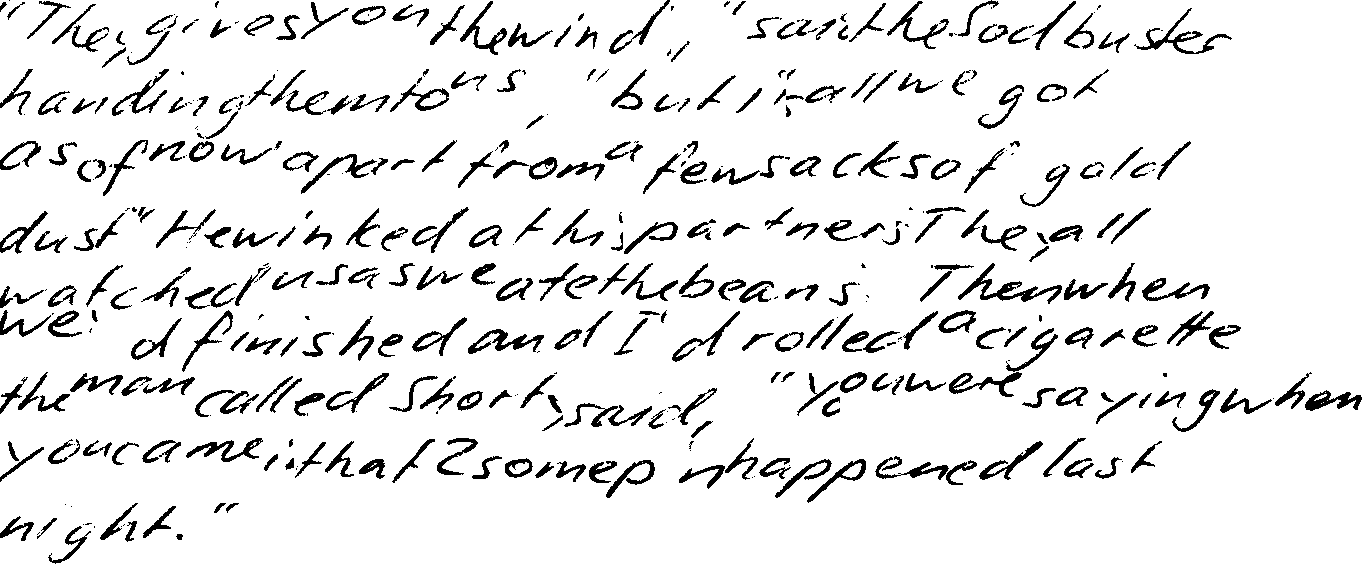 "They gives you the wind," said the Sodbuster
handing them to us, "but it's all we got
as of now apart from a few sacks of gold
dust" He winked at his partners. They all
watched us as we ate the beans. Then when
we'd finished and I'd rolled a cigarette
the man called Shorty said, "You were saying when
you came in that somep'n happened last
night."